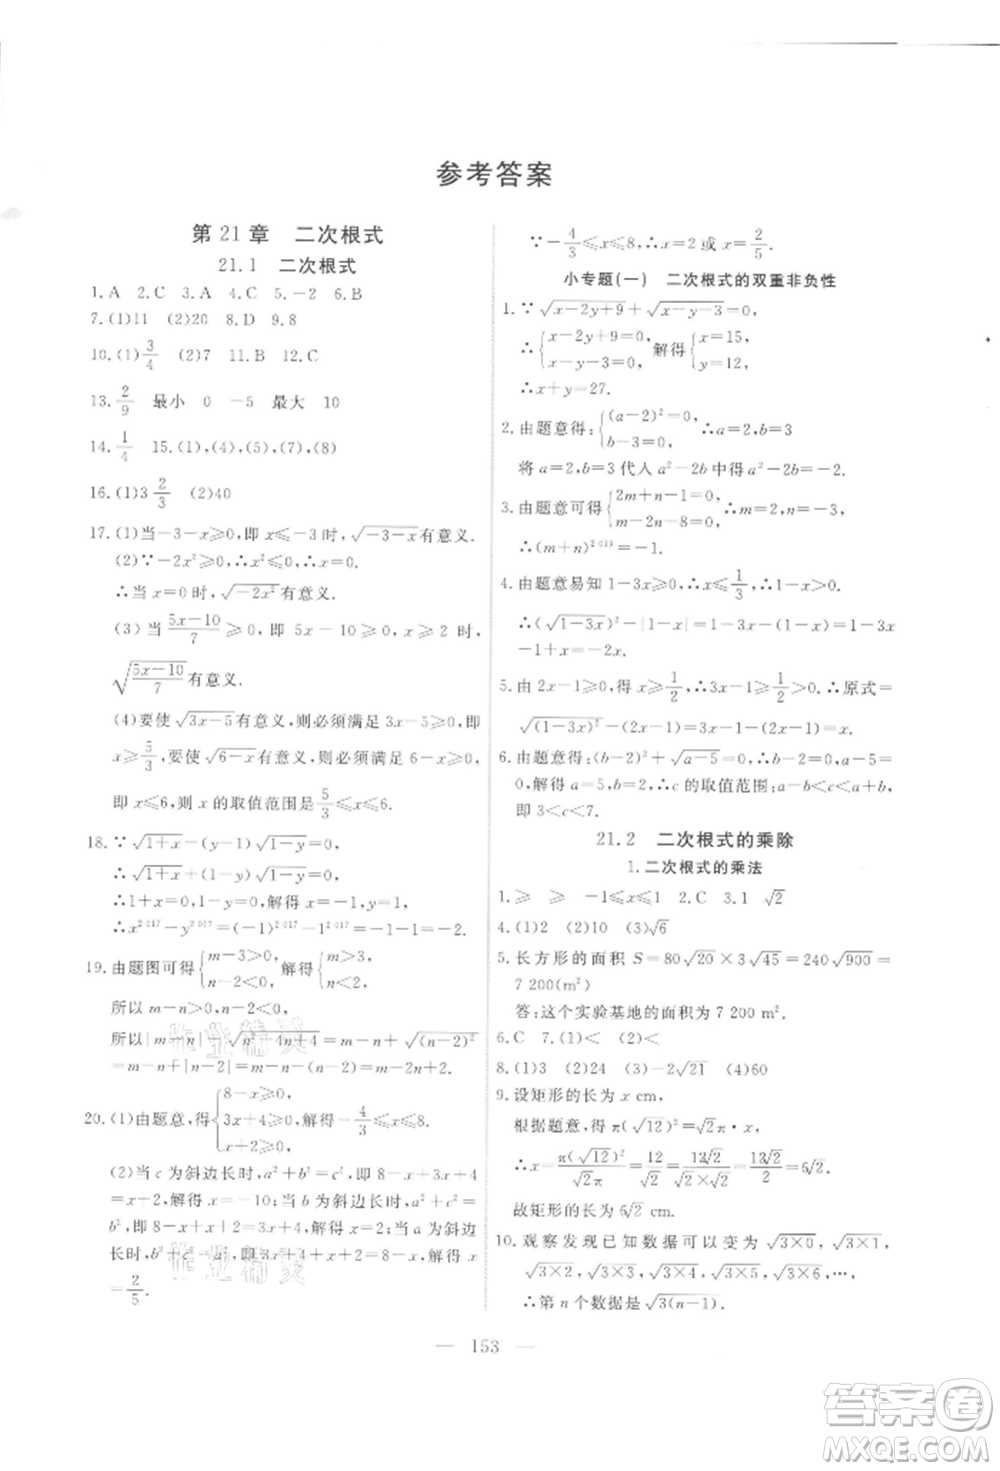 参考答案
第 21 章　二次根式
21.1　二次根式
1. A　2. C　3. A　4. C　5. －2　6. B
7. (1)11　(2)20　8. D　9. 8
10. (1)3/4　(2)7　11. B　12. C
13. 2/9　最小　0　－5　最大　10
14. 1/4　15. (1),(4),(5),(7),(8)
16. (1)3 2/3　(2)40
17. (1)当－3－x≥0，即 x≤－3时，√(－3－x)有意义.
(2)∵－2x²≥0，∴x²≤0，∴x＝0.
∴当 x＝0 时，√(－2x²)有意义.
(3) 当 (5x－10)/7≥0，即 5x－10≥0，x≥2 时，
√((5x－10)/7)有意义.
(4)要使√(3x－5)有意义，则必须满足 3x－5≥0，即
x≥5/3，要使√(6－x)有意义，则必须满足 6－x≥0，
即 x≤6，则 x 的取值范围是5/3≤x≤6.
18. ∵√(1＋x)－(y－1)√(1－y)＝0，
∴√(1＋x)＋(1－y)√(1－y)＝0，
∴1＋x＝0，1－y＝0，解得 x＝－1，y＝1，
∴x^2 017－y^2 017＝(－1)^2 017－1^2 017＝－1－1＝－2.
19. 由题图可得{m－3>0, n－2<0, 解得{m>3, n<2,
所以 m－n>0，
所以|m－n|＋√(n²－4n＋4)＝m－n＋√((n－2)²)
＝m－n＋|n－2|＝m－n＋2－n＝m－2n＋2.
20. (1)由题意，得{8－x≥0, 3x＋4≥0, x＋2≥0. 解得－4/3≤x≤8.
(2)当 c 为斜边长时，a²＋b²＝c²，即 8－x＋3x＋4
＝x＋2，解得 x＝－10；当 b 为斜边长时，a²＋c²＝
b²，即 8－x＋x＋2＝3x＋4，解得 x＝2；当 a 为斜边
长时，b²＋c²＝a²，即 3x＋4＋x＋2＝8－x，解得 x
＝2/5.
∵－4/3≤x≤8，∴x＝2 或 x＝2/5.
小专题(一)　二次根式的双重非负性
1. ∵√(x－2y＋9)＋√(x－y－3)＝0，
∴{x－2y＋9＝0, x－y－3＝0, 解得{x＝15, y＝12,
∴x＋y＝27.
2. 由题意得：{(a－2)²＝0, b－3＝0, ∴a＝2，b＝3
将 a＝2，b＝3代入 a²－2b 中得 a²－2b＝－2.
3. 由题意可得{2m＋n－1＝0, m－2n－8＝0, ∴m＝2，n＝－3，
∴(m＋n)^2 019＝－1.
4. 由题意易知 1－3x≥0，∴x≤1/3，∴1－x>0，
∴(√(1－3x))²－|1－x|＝1－3x－(1－x)＝1－3x
－1＋x＝－2x.
5. 由 2x－1≥0，得 x≥1/2，∴3x－1≥1/2>0，∴原式＝
√((1－3x)²)－(2x－1)＝3x－1－(2x－1)＝x.
6. 由题意得：(b－2)²＋√(a－5)＝0，∴b－2＝0，a－5＝
0，解得 a＝5，b＝2，∴c 的取值范围：a－b<c<a＋b，
即 3<c<7.
21.2　二次根式的乘除
1. 二次根式的乘法
1. ≥　≥　－1≤x≤1　2. C　3. 1　√2
4. (1)2　(2)10　(3)√6
5. 长方形的面积 S＝80√20×3√45＝240√900＝
7 200(m²)
答：这个实验基地的面积为 7 200 m².
6. C　7. (1)<　(2)<
8. (1)3　(2)24　(3)－2√21　(4)60
9. 设矩形的长为 x cm，
根据题意，得 π(√12)²＝√2π·x，
∴x＝π(√12)²/√2π＝12/√2＝12√2/2＝6√2.
故矩形的长为6√2 cm.
10. 观察发现已知数据可以变为√(3×0)，√(3×1)，
√(3×2)，√(3×3)，√(3×4)，√(3×5)，√(3×6)，…，
∴第 n 个数据是√(3(n－1)).
— 153 —
作业精灵
作业精灵
答案卷
MXQE.COM